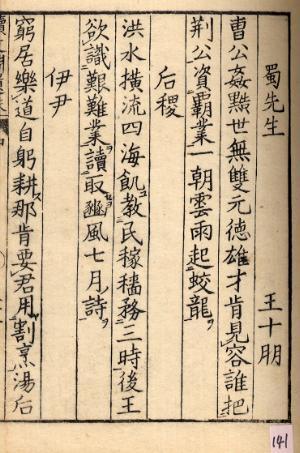 蜀先生 王十朋
曹公姦黠世無雙元德雄才肯見容誰把
荆公資霸業一朝雲雨起蛟龍
后稷
洪水橫流四海飢教民稼穡務三時後王
欲識艱難業讀取豳風七月詩
伊尹
窮居樂道自躬耕那肯要君用割烹湯后
141